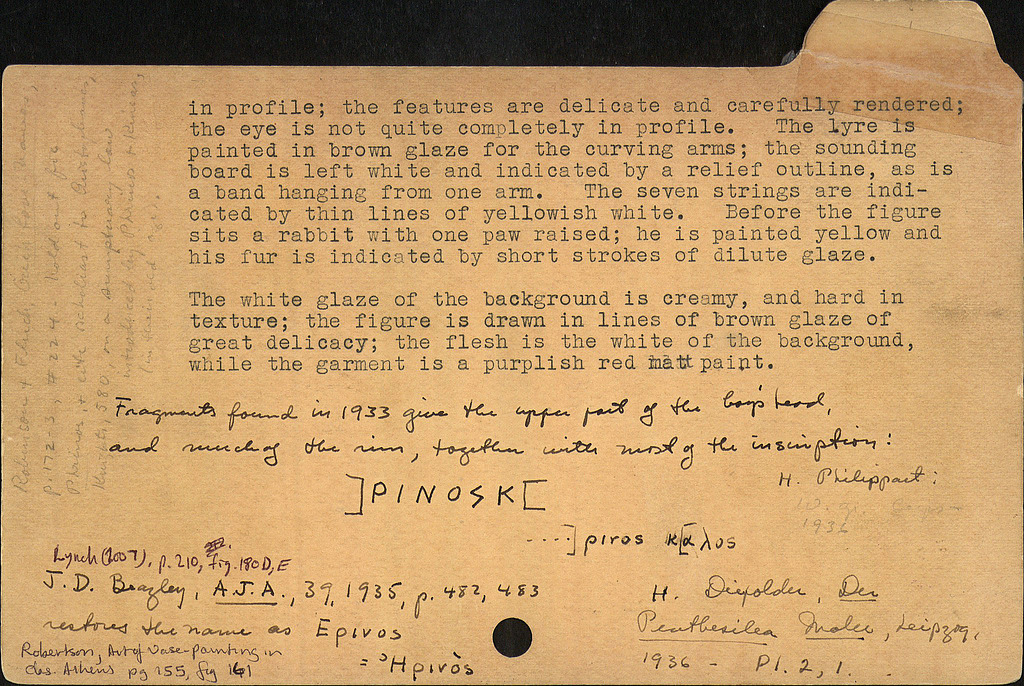 in profile; the features are delicate and carefully rendered;
the eye is not quite completely in profile. The lyre is
painted in brown glaze for the curving arms; the sounding
board is left white and indicated by a relief outline, as is
a band hanging from one arm. The seven strings are indi-
cated by thin lines of yellowish white. Before the figure
sits a rabbit with one paw raised; he is painted yellow and
his fur is indicated by short strokes of dilute glaze.
The white glaze of the background is creamy, and hard in
texture; the figure is drawn in lines of brown glaze of
great delicacy; the flesh is the white of the background,
while the garment is a purplish red matt paint.
Fragments found in 1933 give the upper part of the boy's head,
and much of the rim, together with most of the inscription:
H. Philippart:
]PINOSK[
1936
....]pιros κ[αλος
Lynch (2007), p. 210, fig. 180 D, E
J. D. Beazley, A.J.A., 39, 1935, p. 482, 483
restores the name as Epινος
= Ηριnòς
H. Diepolder, Der
Penthesilea Maler, Leipzig,
1936 - Pl. 2, 1.
Robertson, Art of Vase-painting in
Clas. Athens pg 155, fig 161
Robinson + Fluck,
p. 172-3, # 224. - Hold out for